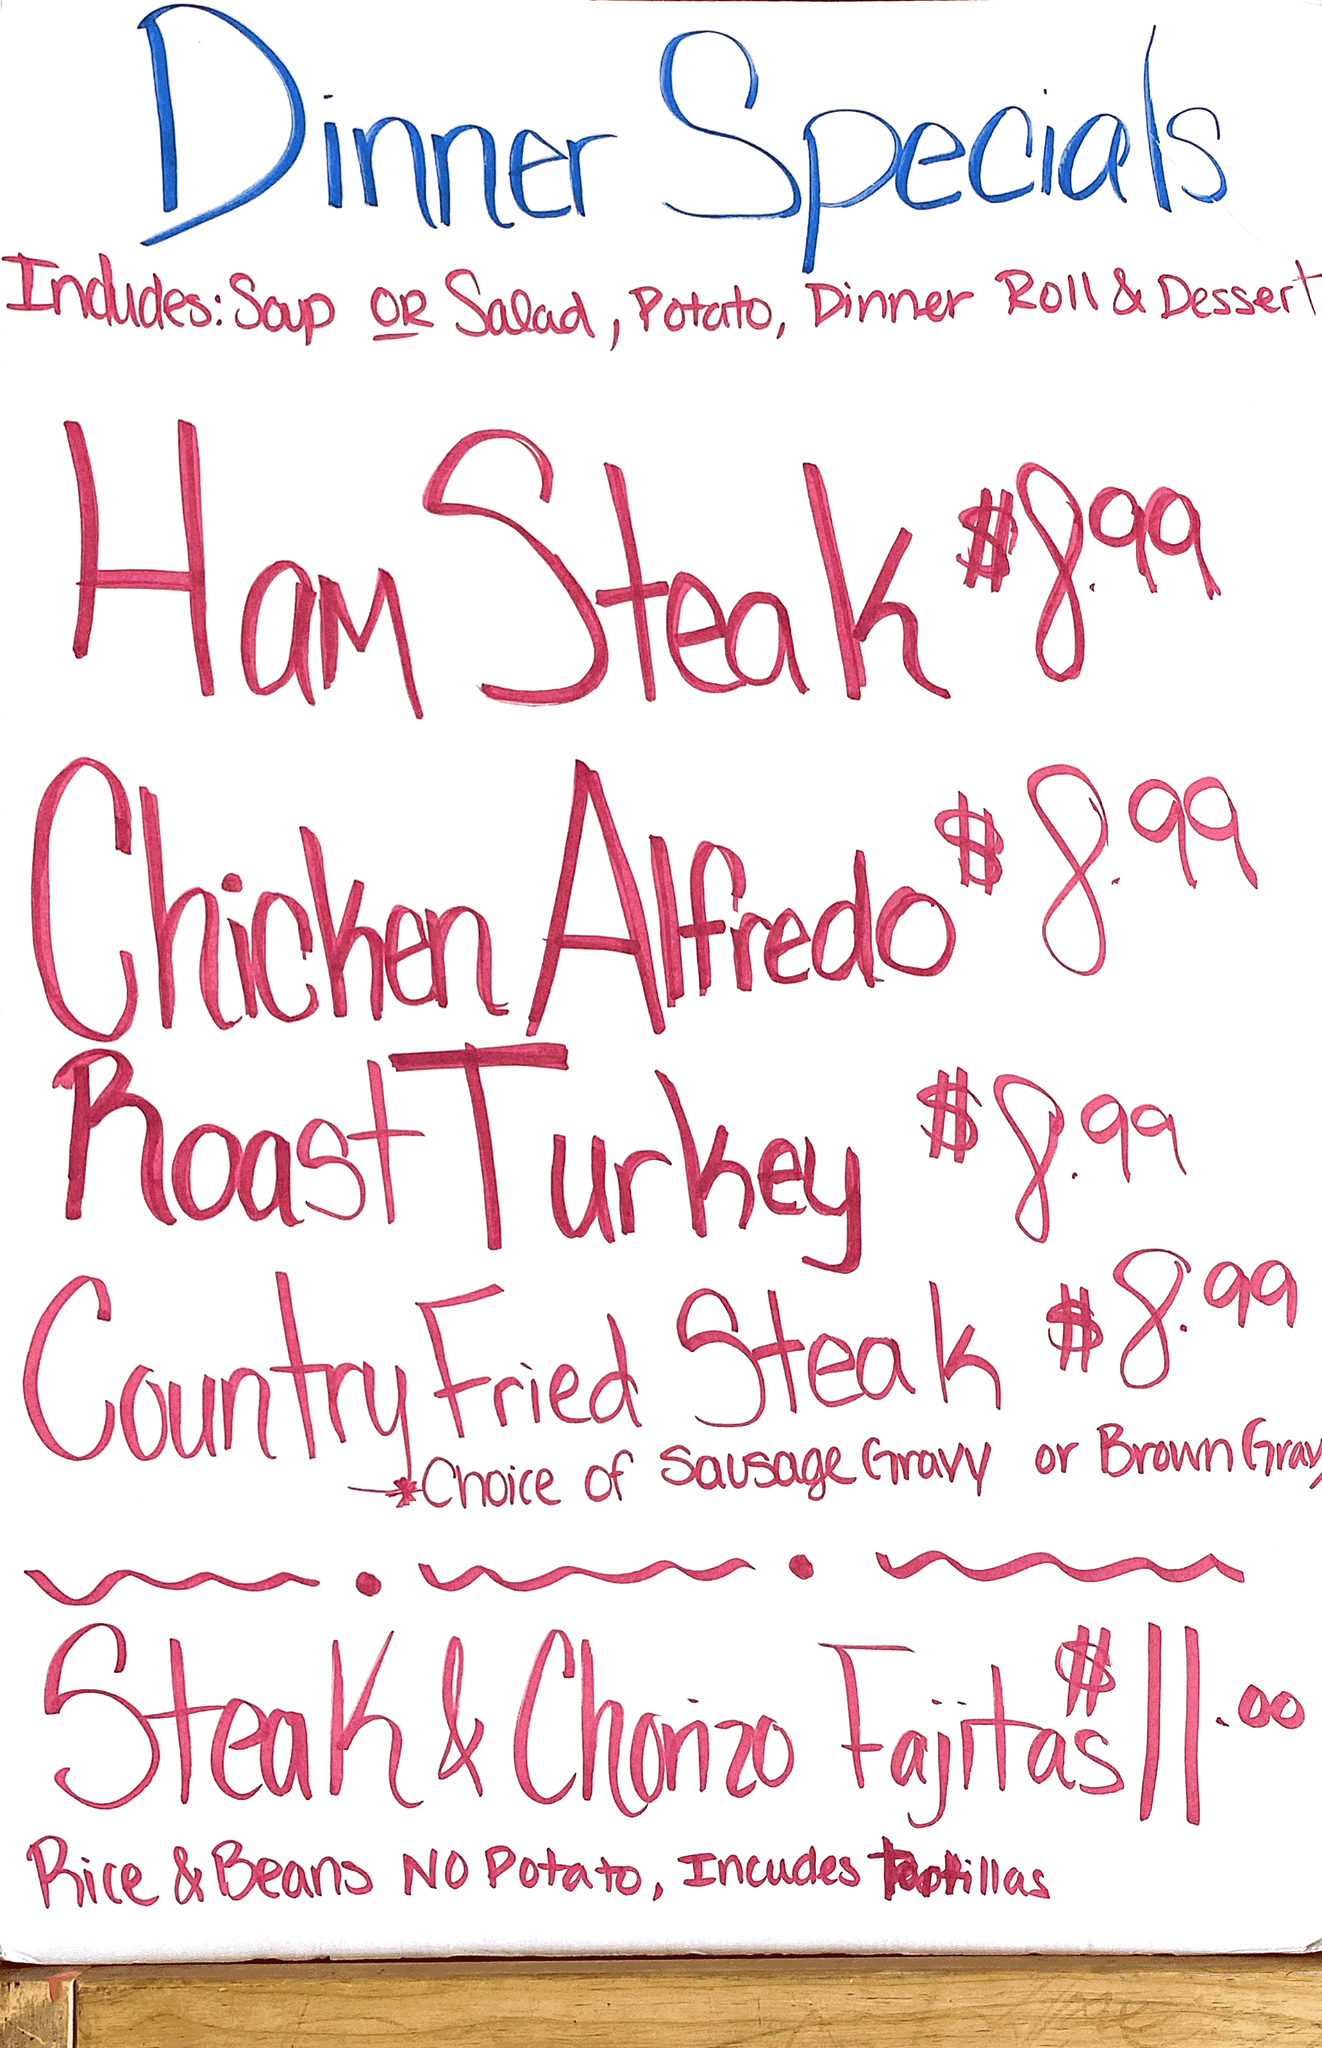 Dinner Specials
Includes: Soup OR Salad, Potato, Dinner Roll & Dessert
Ham Steak $8.99
Chicken Alfredo $8.99
Roast Turkey $8.99
Country Fried Steak $8.99
*Choice of Sausage Gravy or Brown Gravy
Steak & Chorizo Fajitas $11.00
Rice & Beans NO Potato, Incudes Tortillas